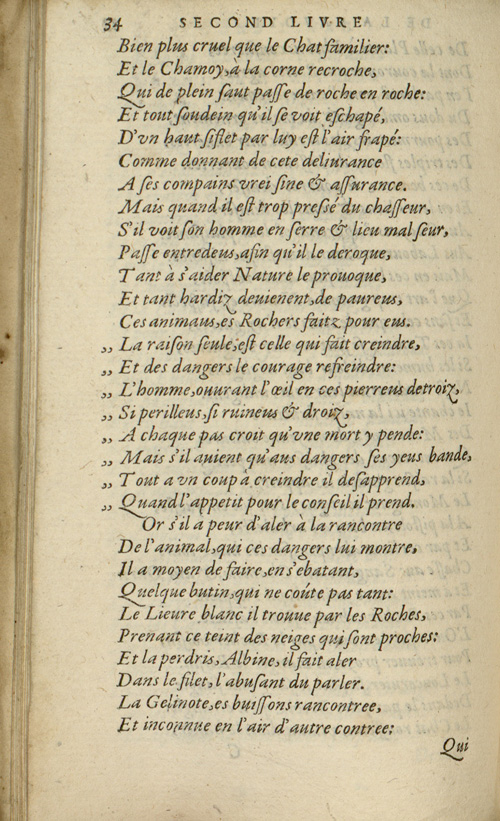 34 SECOND LIVRE
Bien plus cruel que le Chat familier:
Et le Chamoy, à la corne recroche,
Qui de plein ſaut paſſe de roche en roche:
Et tout ſoudein qu'il ſe voit eſchapé,
D'vn haut ſiflet par luy eſt l'air frapé:
Comme donnant de cete deliurance
A ſes compains vrei ſine & aſſurance.
Mais quand il eſt trop preſſé du chaſſeur,
S'il voit ſon homme en ſerre & lieu mal ſeur,
Paſſe entredeus, afin qu'il le deroque,
Tant à s'aider Nature le prouoque,
Et tant hardiz deuienent, de paureus,
Ces animaus, es Rochers faitz pour eus.
„ La raiſon ſeule, eſt celle qui fait creindre,
„ Et des dangers le courage refreindre:
„ L'homme, ouurant l'œil en ces pierreus detroiz,
„ Si perilleus, ſi ruineus & droiz,
„ A chaque pas croit qu'vne mort y pende:
„ Mais s'il auient qu'aus dangers ſes yeus bande,
„ Tout a vn coup à creindre il deſapprend,
„ Quand l'appetit pour le conſeil il prend.
Or s'il a peur d'aler à la rancontre
De l'animal, qui ces dangers lui montre,
Il a moyen de faire, en s'ebatant,
Quelque butin, qui ne coúte pas tant:
Le Lieure blanc il trouue par les Roches,
Prenant ce teint des neiges qui ſont proches:
Et la perdris, Albine, il fait aler
Dans le filet, l'abuſant du parler.
La Gelinote, es buiſſons rancontree,
Et inconnue en l'air d'autre contree:
Qui